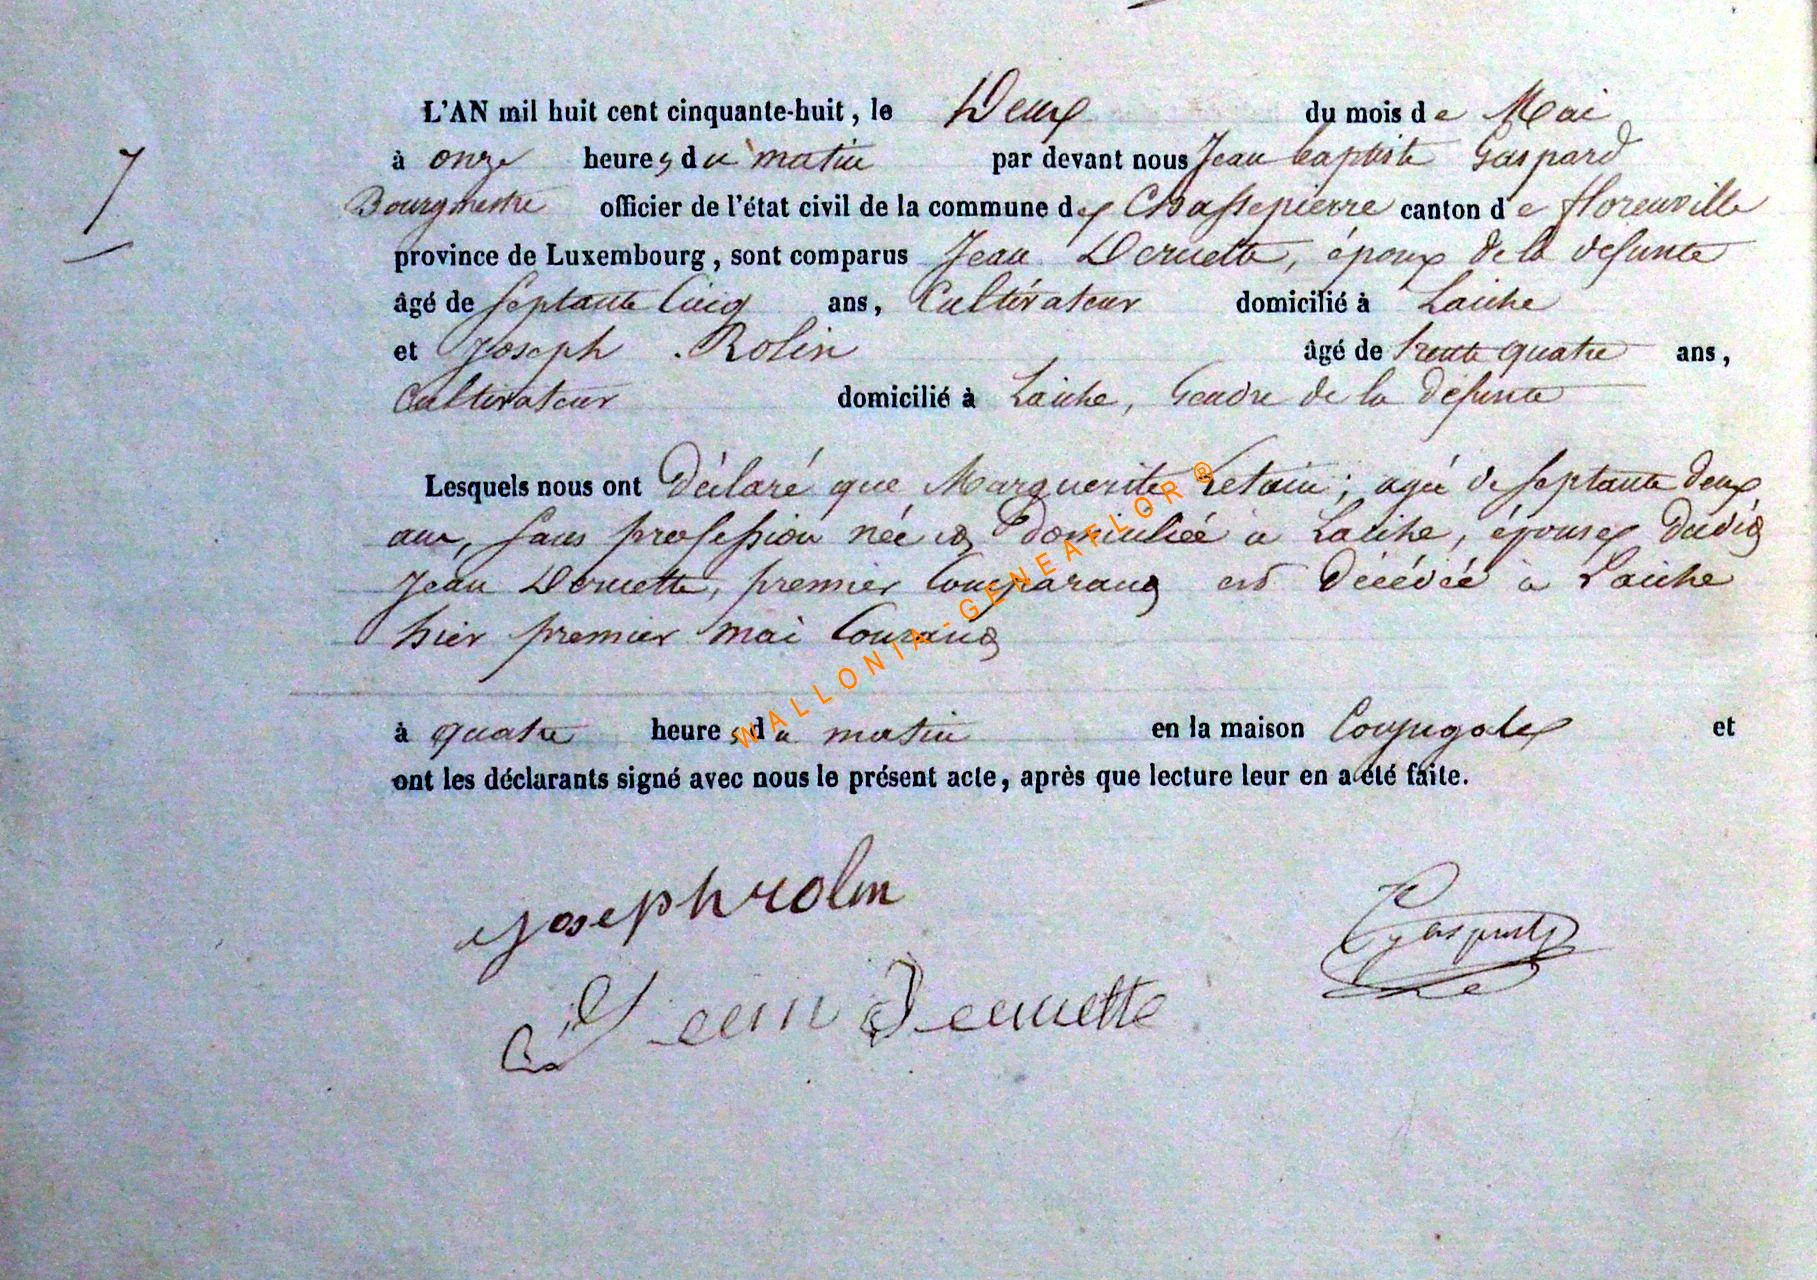 L'AN mil huit cent cinquante-huit, le Deux du mois de Mai
7
à onze heures du matin par devant nous Jean baptiste Gaspard
Bourgmestre officier de l'état civil de la commune de Chassepierre canton de florenville
province de Luxembourg, sont comparus Jean Deruette, époux de la défunte
âgé de septante Cinq ans, Cultivateur domicilié à Laiche
et Joseph Rolin âgé de trente quatre ans,
Cultivateur domicilié à Laiche, Gendre de la défunte
Lesquels nous ont Déclaré que Marguerite Letain; agée de septante deux
ans, sans profession née et domiciliée à Laiche, épouse dudit
Jean Deruette, premier Comparant est décédée à Laiche
hier premier mai Courant
à quatre heures du matin en la maison Conjugale et
ont les déclarants signé avec nous le présent acte, après que lecture leur en a été faite.
joseph rolin
JB gaspard
Jean Deruette
WALLONIA-GENEAFLOR®